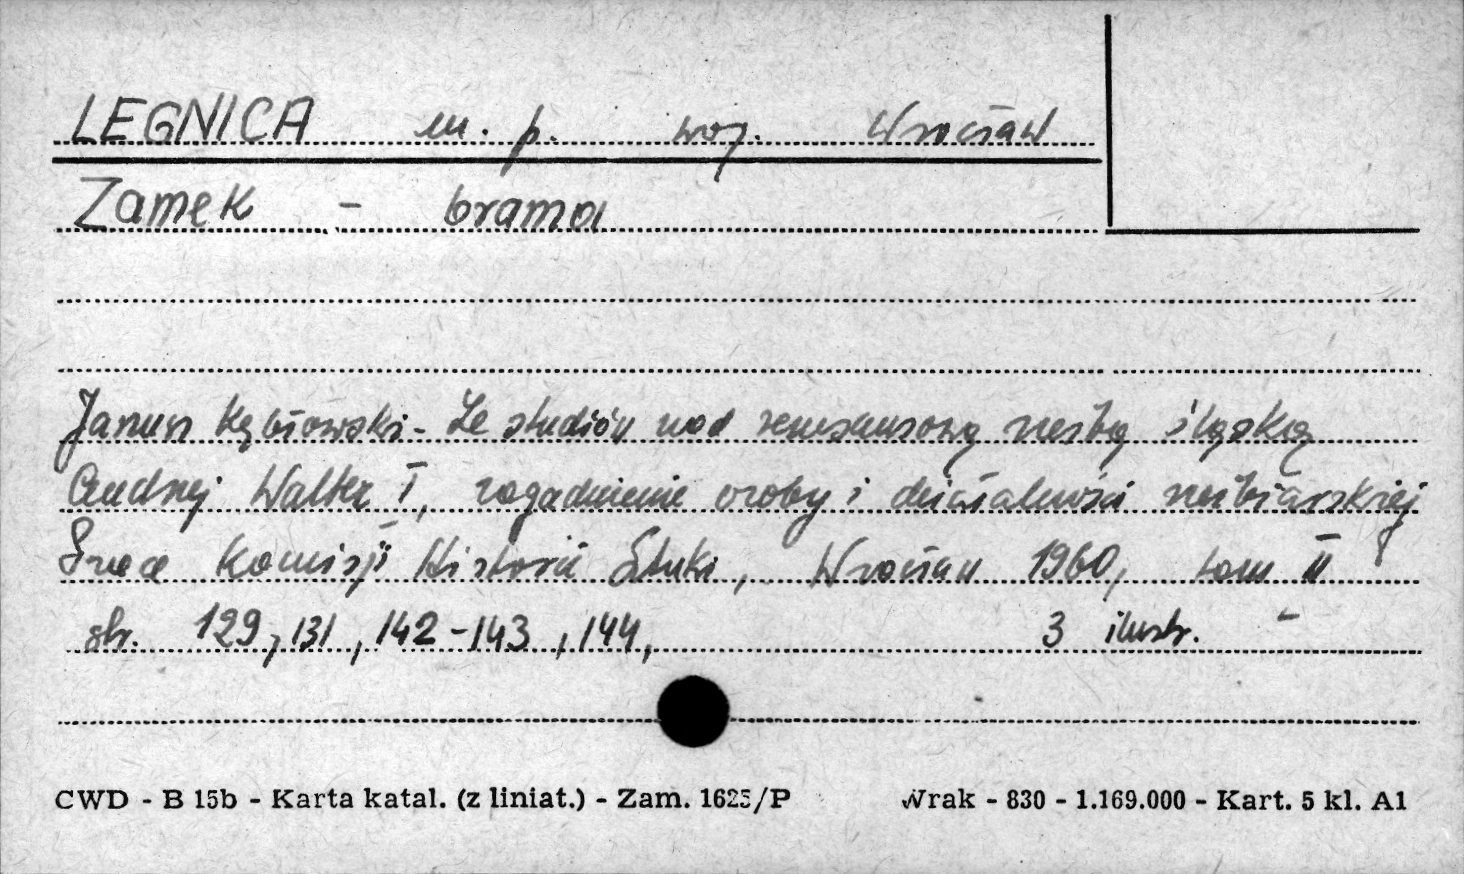 LEGNICA m. p. woj. Wrocław
Zamek - brama
Janusz Kębłowski - Ze studiów nad renesansową rzeźbą śląską
Andrzej Walter I, zagadnienie osoby i działalności rzeźbiarskiej
Prace Komisji Historii Sztuki, Wrocław 1960, tom II
str. 129, 131, 142-143, 144, 3 ilustr. -
CWD - B 15b - Karta katal. (z liniat.) - Zam. 1625/P Wrak - 830 - 1.169.000 - Kart. 5 kl. A1